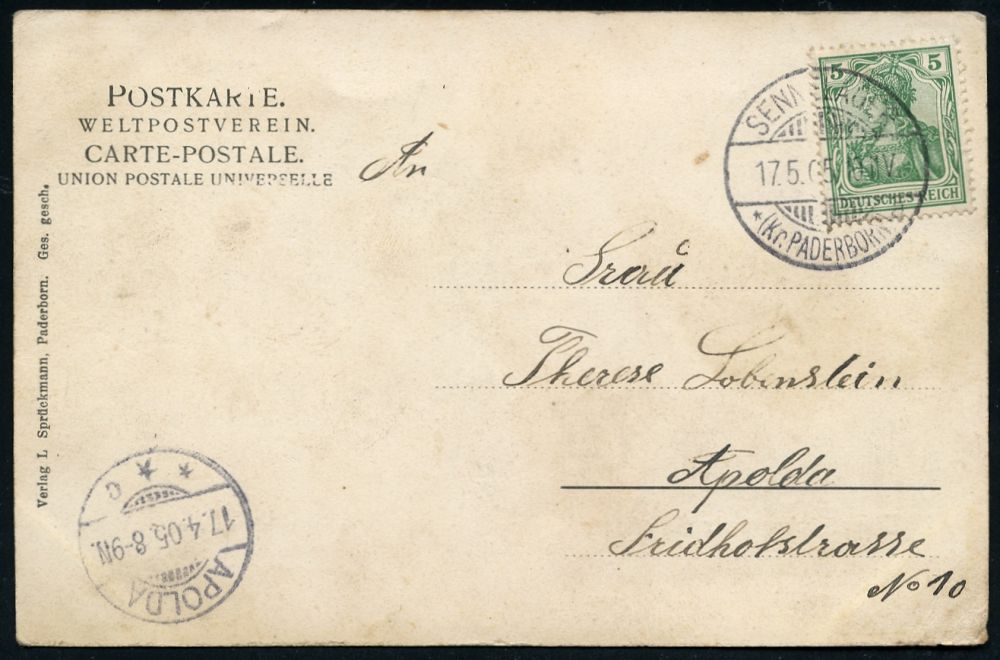 POSTKARTE.
WELTPOSTVEREIN.
CARTE-POSTALE.
UNION POSTALE UNIVERSELLE
An
Frau
Therese Lobenstein
Apolda
Fridhofstrasse
No 10
5 5
DEUTSCHES REICH
17.5.05
*(Kr. PADERBORN)
Verlag L Sprückmann, Paderborn. Ges. gesch.
C
17.4.05. 8-9N.
APOLDA